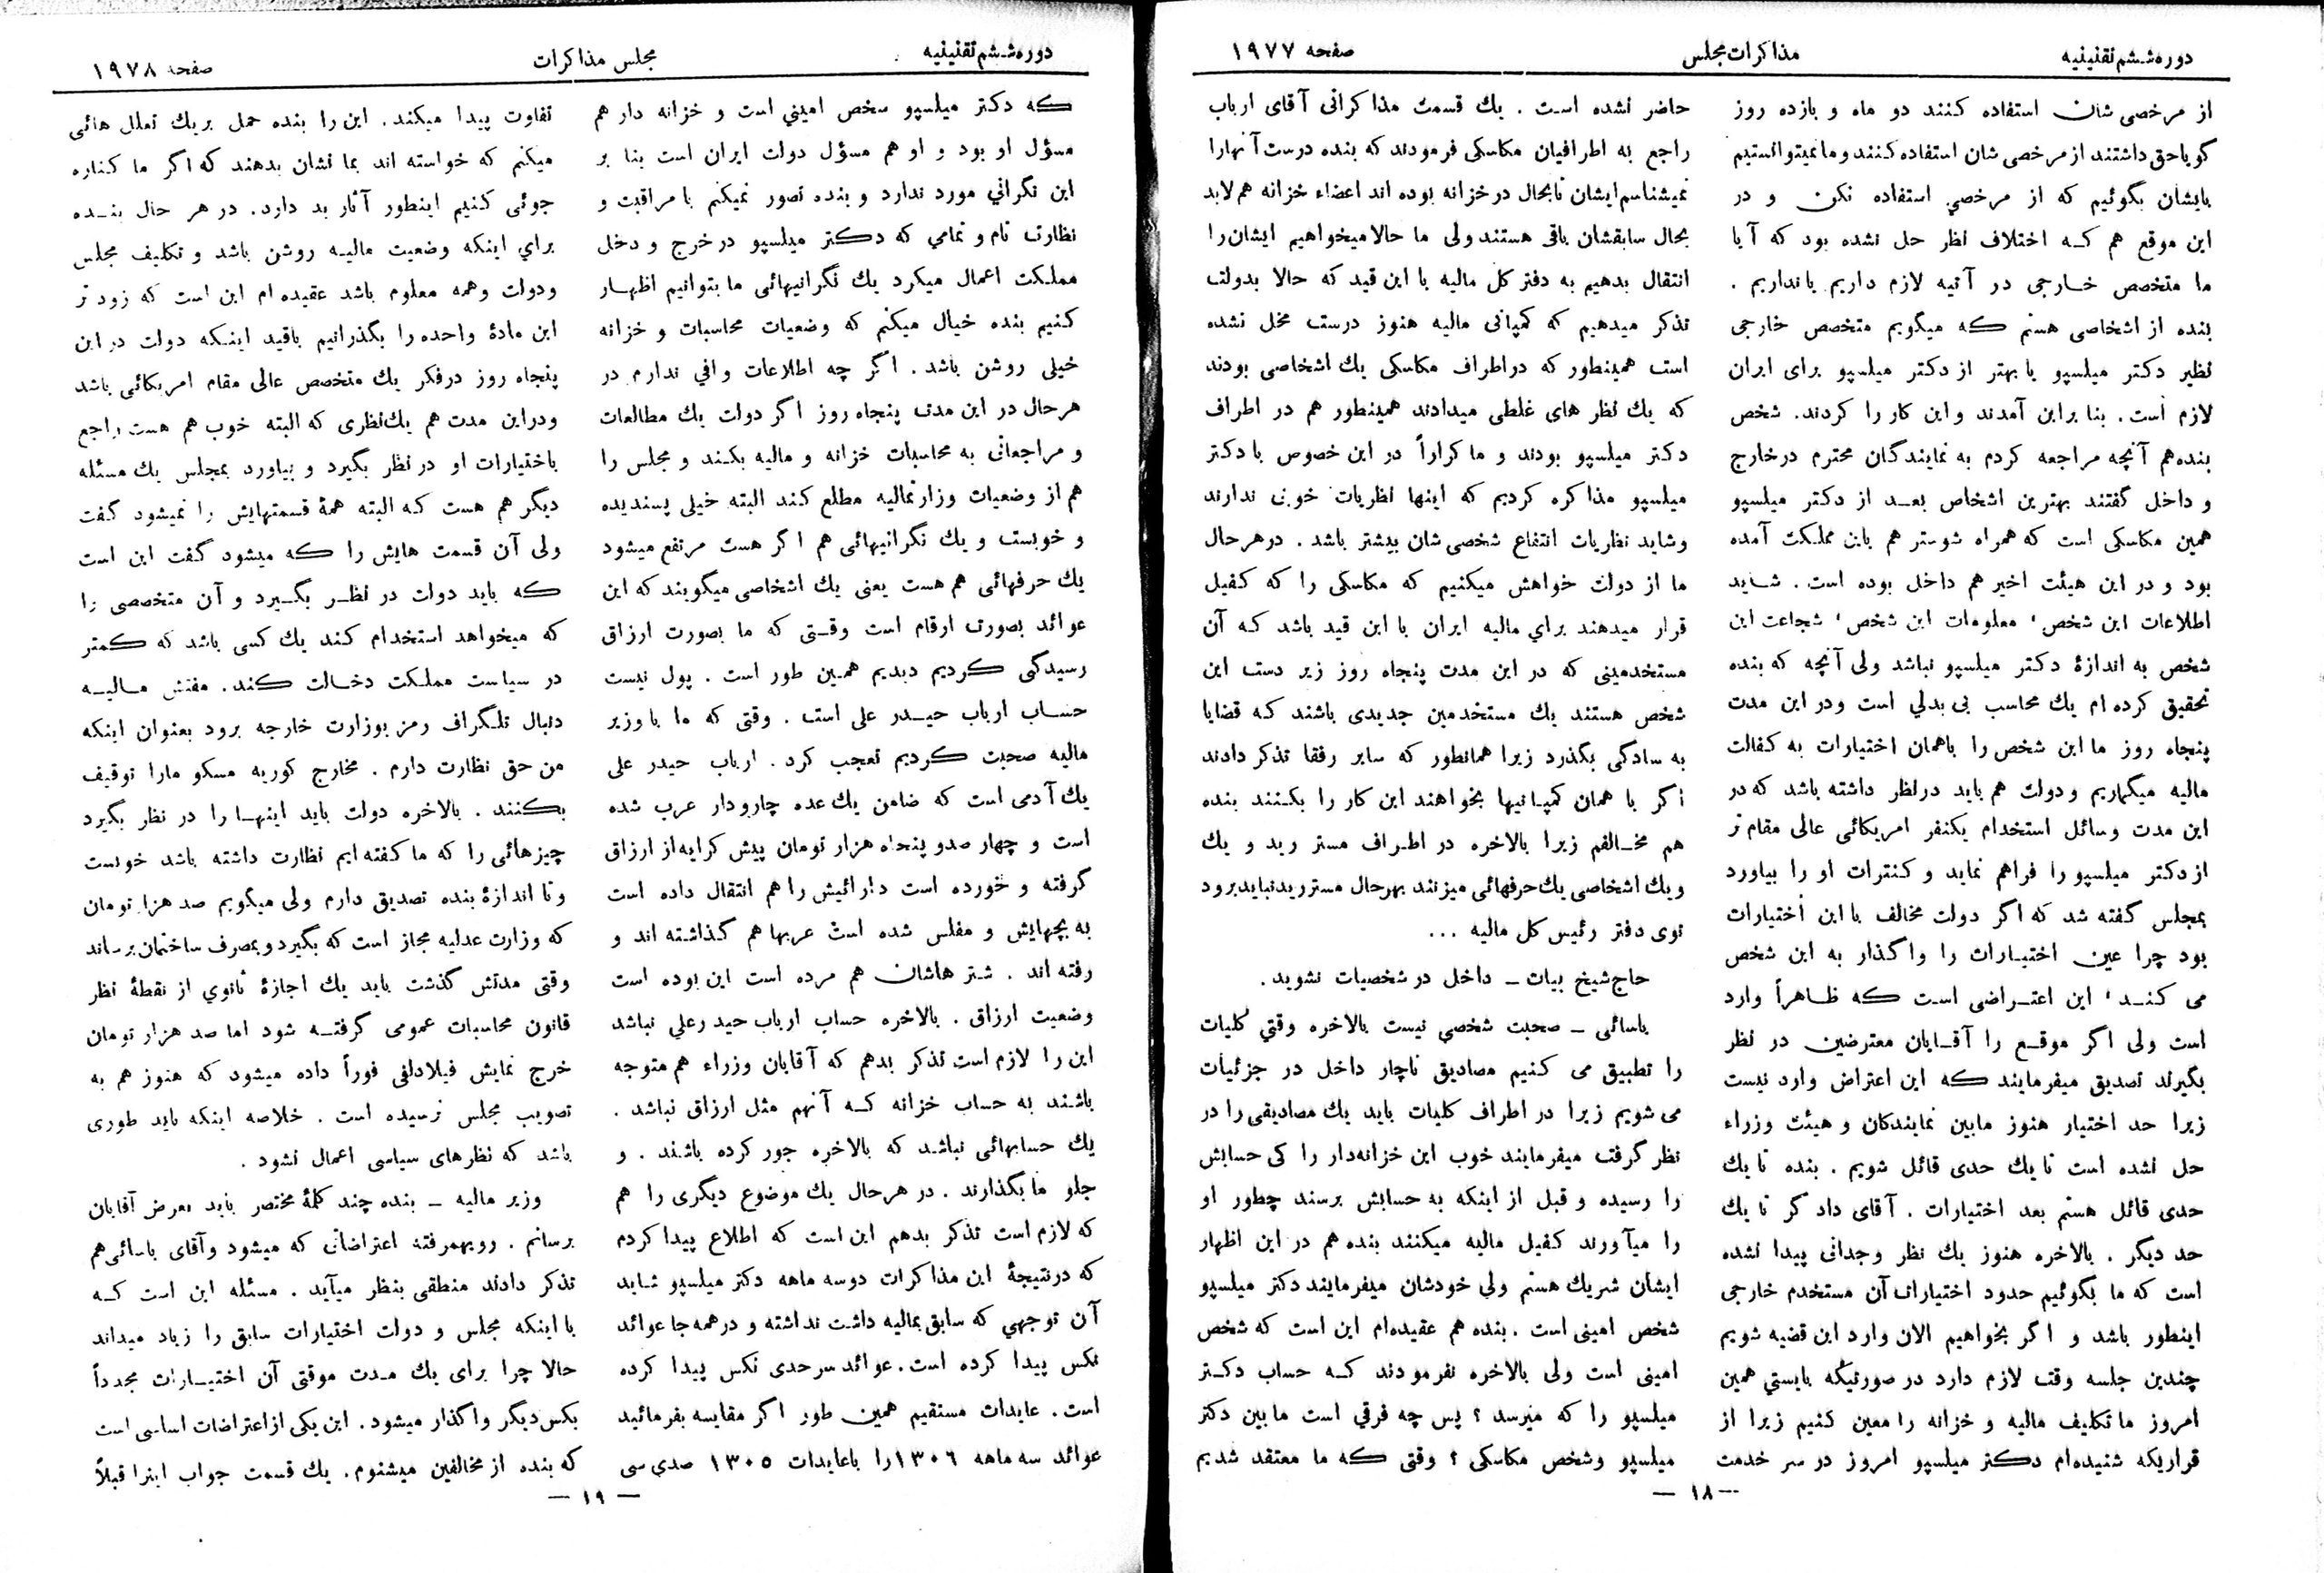 دوره ششم تقنینیه
مذاکرات مجلس
صفحه ۱۹۷۷
از مرخصی شان استفاده کنند دو ماه و یازده روز
گویا حق داشتند از مرخصی شان استفاده کنند و ما نمیتوانستیم
بایشان بگوئیم که از مرخصي استفاده نکن و در
این موقع هم کـه اختلاف نظر حل نشده بود که آیا
ما متخصص خارجی در آتیه لازم داریم یا نداریم .
بنده از اشخاصی هستم که میگویم متخصص خارجی
نظیر دکتر میلسپو یا بهتر از دکتر میلسپو برای ایران
لازم است . بنا براین آمدند و این کار را کردند. شخص
بنده هم آنچه مراجعه کردم به نمایندگان محترم در خارج
و داخل گفتند بهترین اشخاص بعـد از دکتر میلسپو
همین مکاسکی است که همراه شوستر هم باین مملکت آمده
بود و در این هیئت اخیر هم داخل بوده است . شاید
اطلاعات این شخص ، معلومات این شخص ، شجاعت این
شخص به اندازهٔ دکتر میلسپو نباشد ولی آنچه که بنده
تحقیق کرده ام یك محاسب بی بدلي است و در این مدت
پنجاه روز ما این شخص را باهمان اختیارات به کفالت
مالیه میگماریم و دولت هم باید در نظر داشته باشد که در
این مدت وسائل استخدام یکنفر امریکائی عالی مقام تر
از دکتر میلسپو را فراهم نماید و کنترات او را بیاورد
بمجلس گفته شد که اگر دولت مخالف با این اختیارات
بود چرا عین اختیارات را واگذار به این شخص
می کنـد ، این اعتـراضی است که ظـاهراً وارد
است ولی اگر موقـع را آقـایان معترضین در نظر
بگیرند تصدیق میفرمایند که این اعتراض وارد نیست
زیرا حد اختیار هنوز مابین نمایندکان و هیئت وزراء
حل نشده است تا یك حدی قائل شویم . بنده تا یك
حدی قائل هستم بعد اختیارات . آقای داد گر تا یك
حد دیگر . بالاخره هنوز یك نظر وجدانی پیدا نشده
است که ما بگوئیم حدود اختیارات آن مستخدم خارجی
اینطور باشد و اگر بخواهیم الان وارد این قضیه شویم
چندین جلسه وقت لازم دارد در صورتیکه بایستي همین
امروز ما تکلیف مالیه و خزانه را معین کنیم زیرا از
قراریکه شنیده‌ام دکتر میلسپو امروز در سر خدمت
حاضر نشده است . یك قسمت مذاکراتی آقای ارباب
راجع به اطرافیان مکاسکی فرمودند که بنده درست آنهارا
نمیشناسم ایشان تا بحال در خزانه بوده اند اعضاء خزانه هم لابد
بحال سابقشان باقی هستند ولی ما حالا میخواهیم ایشان را
انتقال بدهیم به دفتر کل مالیه با این قید که حالا بدولت
تذکر میدهیم که کمپانی مالیه هنوز درست مخل نشده
است همینطور که در اطراف مکاسکی یك اشخاصی بودند
که یك نظر های غلطی میدادند همینطور هم در اطراف
دکتر میلسپو بودند و ما کراراً در این خصوص با دکتر
میلسپو مذاکره کردیم که اینها نظریات خوبی ندارند
وشاید نظریات انتفاع شخصی شان بیشتر باشد . در هر حال
ما از دولت خواهش میکنیم که مکاسکی را که کفیل
قرار میدهند براي مالیه ایران با این قید باشد کـه آن
مستخدمینی که در این مدت پنجاه روز زیر دست این
شخص هستند یك مستخدمین جدیدی باشند کـه قضایا
به سادگی بگذرد زیرا همانطور که سایر رفقا تذکر دادند
اگر با همان کمپـانیها بخواهند این کار را بکـنند بنده
هم مخـالفم زیرا بالاخره در اطـراف مستر رید و یك
و یك اشخاصی یك حرفهائی میزنند بهر حال مستر رید نباید برود
توی دفتر رئیس کل مالیه ...
حاج شیخ بیات ـ داخل در شخصیات نشوید .
یاسائی ـ صحبت شخصي نیست بالاخره وقتي کلیات
را تطبیق می کنیم مصادیق ناچار داخل در جزئیات
می شویم زیرا در اطراف کلیات باید یك مصادیقی را در
نظر گرفت میفرمایند خوب این خزانه‌دار را کی حسابش
را رسیده و قبل از اینکه به حسابش برسند چطور او
را میآورند کفیل مالیه میکنند بنده هم در این اظهار
ایشان شریك هستم ولي خودشان میفرمایند دکتر میلسپو
شخص امینی است . بنده هم عقیده‌ام این است که شخص
امینی است ولی بالاخره نفرمودند کـه حساب دکـتر
میلسپو را که میرسد ؟ پس چه فرقي است مابین دکتر
میلسپو وشخص مکاسکی ؟ وقتی که ما معتقد شدیم
— ۱۸ —
دوره ششم تقنینیه
مجلس مذاکرات
صفحه ۱۹۷۸
که دکتر میلسپو سخص امیني است و خزانه دار هم
مسؤل او بود و او هم مسؤل دولت ایران است بنا بر
این نگراني مورد ندارد و بنده تصور نمیکنم با مراقبت و
نظارت تام و تمامي که دکتر میلسپو در خرج و دخل
مملکت اعمال میکرد یك نگرانیهائی ما بتوانیم اظهـار
کنیم بنده خیال میکنم که وضعیات محاسبات و خزانه
خیلی روشن باشد . اگر چه اطلاعات وافي ندارم در
هرحال در این مدت پنجاه روز اگر دولت یك مطالعات
و مراجعاتی به محاسبات خزانه و مالیه بکـند و مجلس را
هم از وضعیات وزارتمالیه مطلع کند البته خیلی پسندیده
و خوبست و یك نگرانیهائی هم اگر هست مرتفع میشود
یك حرفهائی هم هست یعنی یك اشخاصی میگویند که این
عوائد بصورت ارقام است وقـتی که ما بصورت ارزاق
رسیدگی کردیم دیدیم همـین طور است . پول نیست
حسـاب ارباب حیـدر علی است . وقتی که ما با وزیر
مالیه صحبت کردیم تعجب کرد . ارباب حیدر علی
یك آدمی است که ضامن یك عده چارودار عرب شده
است و چهار صدو پنجاه هزار تومان پیش کرایه از ارزاق
گرفته و خورده است دارائیش را هم انتقال داده است
به بچهایش و مفلس شده است عربها هم گذاشته اند و
رفته اند . شتر هاشان هم مرده است این بوده است
وضعیت ارزاق . بالاخره حساب ارباب حیدرعلي نباشد
این را لازم است تذکر بدهم که آقایان وزراء هم متوجه
باشند به حساب خزانه کـه آنهم مثل ارزاق نباشد .
یك حسابهائی نباشد که بالاخره جور کرده باشند . و
جلو ما بگذارند . در هرحال یك موضوع دیگری را هم
که لازم است تذکر بدهم این است که اطلاع پیدا کردم
که در نتیجهٔ این مذاکرات دوسه ماهه دکتر میلسپو شاید
آن توجهي که سابق بمالیه داشت نداشته و در همه جا عوائد
نکس پیدا کرده است . عوائد سرحدی نکس پیدا کرده
است . عایدات مستقیم همین طور اگر مقایسه بفرمائید
عوائد سه ماهه ۱۳۰۶ را باعایدات ۱۳۰۵ صدی سی
تفاوت پیدا میکند . این را بنده حمل بر یك تعلل هائی
میکنم که خواسته اند بما نشان بدهند که اگر ما کناره
جوئی کنیم اینطور آثار بد دارد. در هر حال بنـده
براي اینکه وضعیت مالیـه روشن باشد و تکلیف مجلس
ودولت وهمه معلوم باشد عقیده ام این است که زود تر
این مادهٔ واحده را بگذرانیم باقید اینـکه دولت در این
پنجاه روز در فکر یك متخصص عالی مقام امریکائی باشد
ودراین مدت هم یك نظری که البته خوب هم هست راجع
باختیارات او در نظر بگیرد و بیاورد بمجلس یك مسئله
دیگر هم هست که البته همهٔ قسمتهایش را نمیشود گفت
ولی آن قسمت هایش را که میشود گفت این است
که باید دولت در نظـر بگـیرد و آن متخصصی را
که میخواهد استخدام کند یك کسی باشد که کمتر
در سیاست مملکت دخـالت کند . مفتش مـالیـه
دنبال تلگراف رمز بوزارت خارجه برود بعنوان اینکه
من حق نظارت دارم . مخارج کوریه مسکو مارا توقیف
بکنند . بالاخره دولت باید اینهـا را در نظر بگیرد
چیزهائی را که ما گفته ایم نظارت داشته باشد خوبست
وتا اندازهٔ بنده تصدیق دارم ولی میگویم صد هزار تومان
که وزارت عدلیه مجاز است که بگیرد و بمصرف ساختمان برساند
وقتی مدتش گذشت باید یك اجازهٔ ثانوي از نقطهٔ نظر
قانون محاسبات عمومی گرفتـه شود اما صد هزار تومان
خرج نمایش فیلادلفی فوراً داده میشود که هنوز هم به
تصویب مجلس نرسیده است . خلاصه اینکه باید طوری
باشد که نظرهای سیاسی اعمال نشود .
وزیر مالیه ـ بنده چند کلمهٔ مختصر باید بعرض آقایان
برسانم . رویهمرفته اعتراضاتی که میشود وآقای یاسائی هم
تذکر دادند منطقی بنظر میآید . مسئله این است کـه
با اینکه مجلس و دولت اختیارات سابق را زیاد میداند
حالا چرا برای یك مـدت موقتی آن اختیـارات مجدداً
بکس دیگر واگذار میشود . این یکی از اعتراضات اساسی است
که بنده از مخالفین میشنوم . یك قسمت جواب اینرا قبلاً
— ۱۹ —